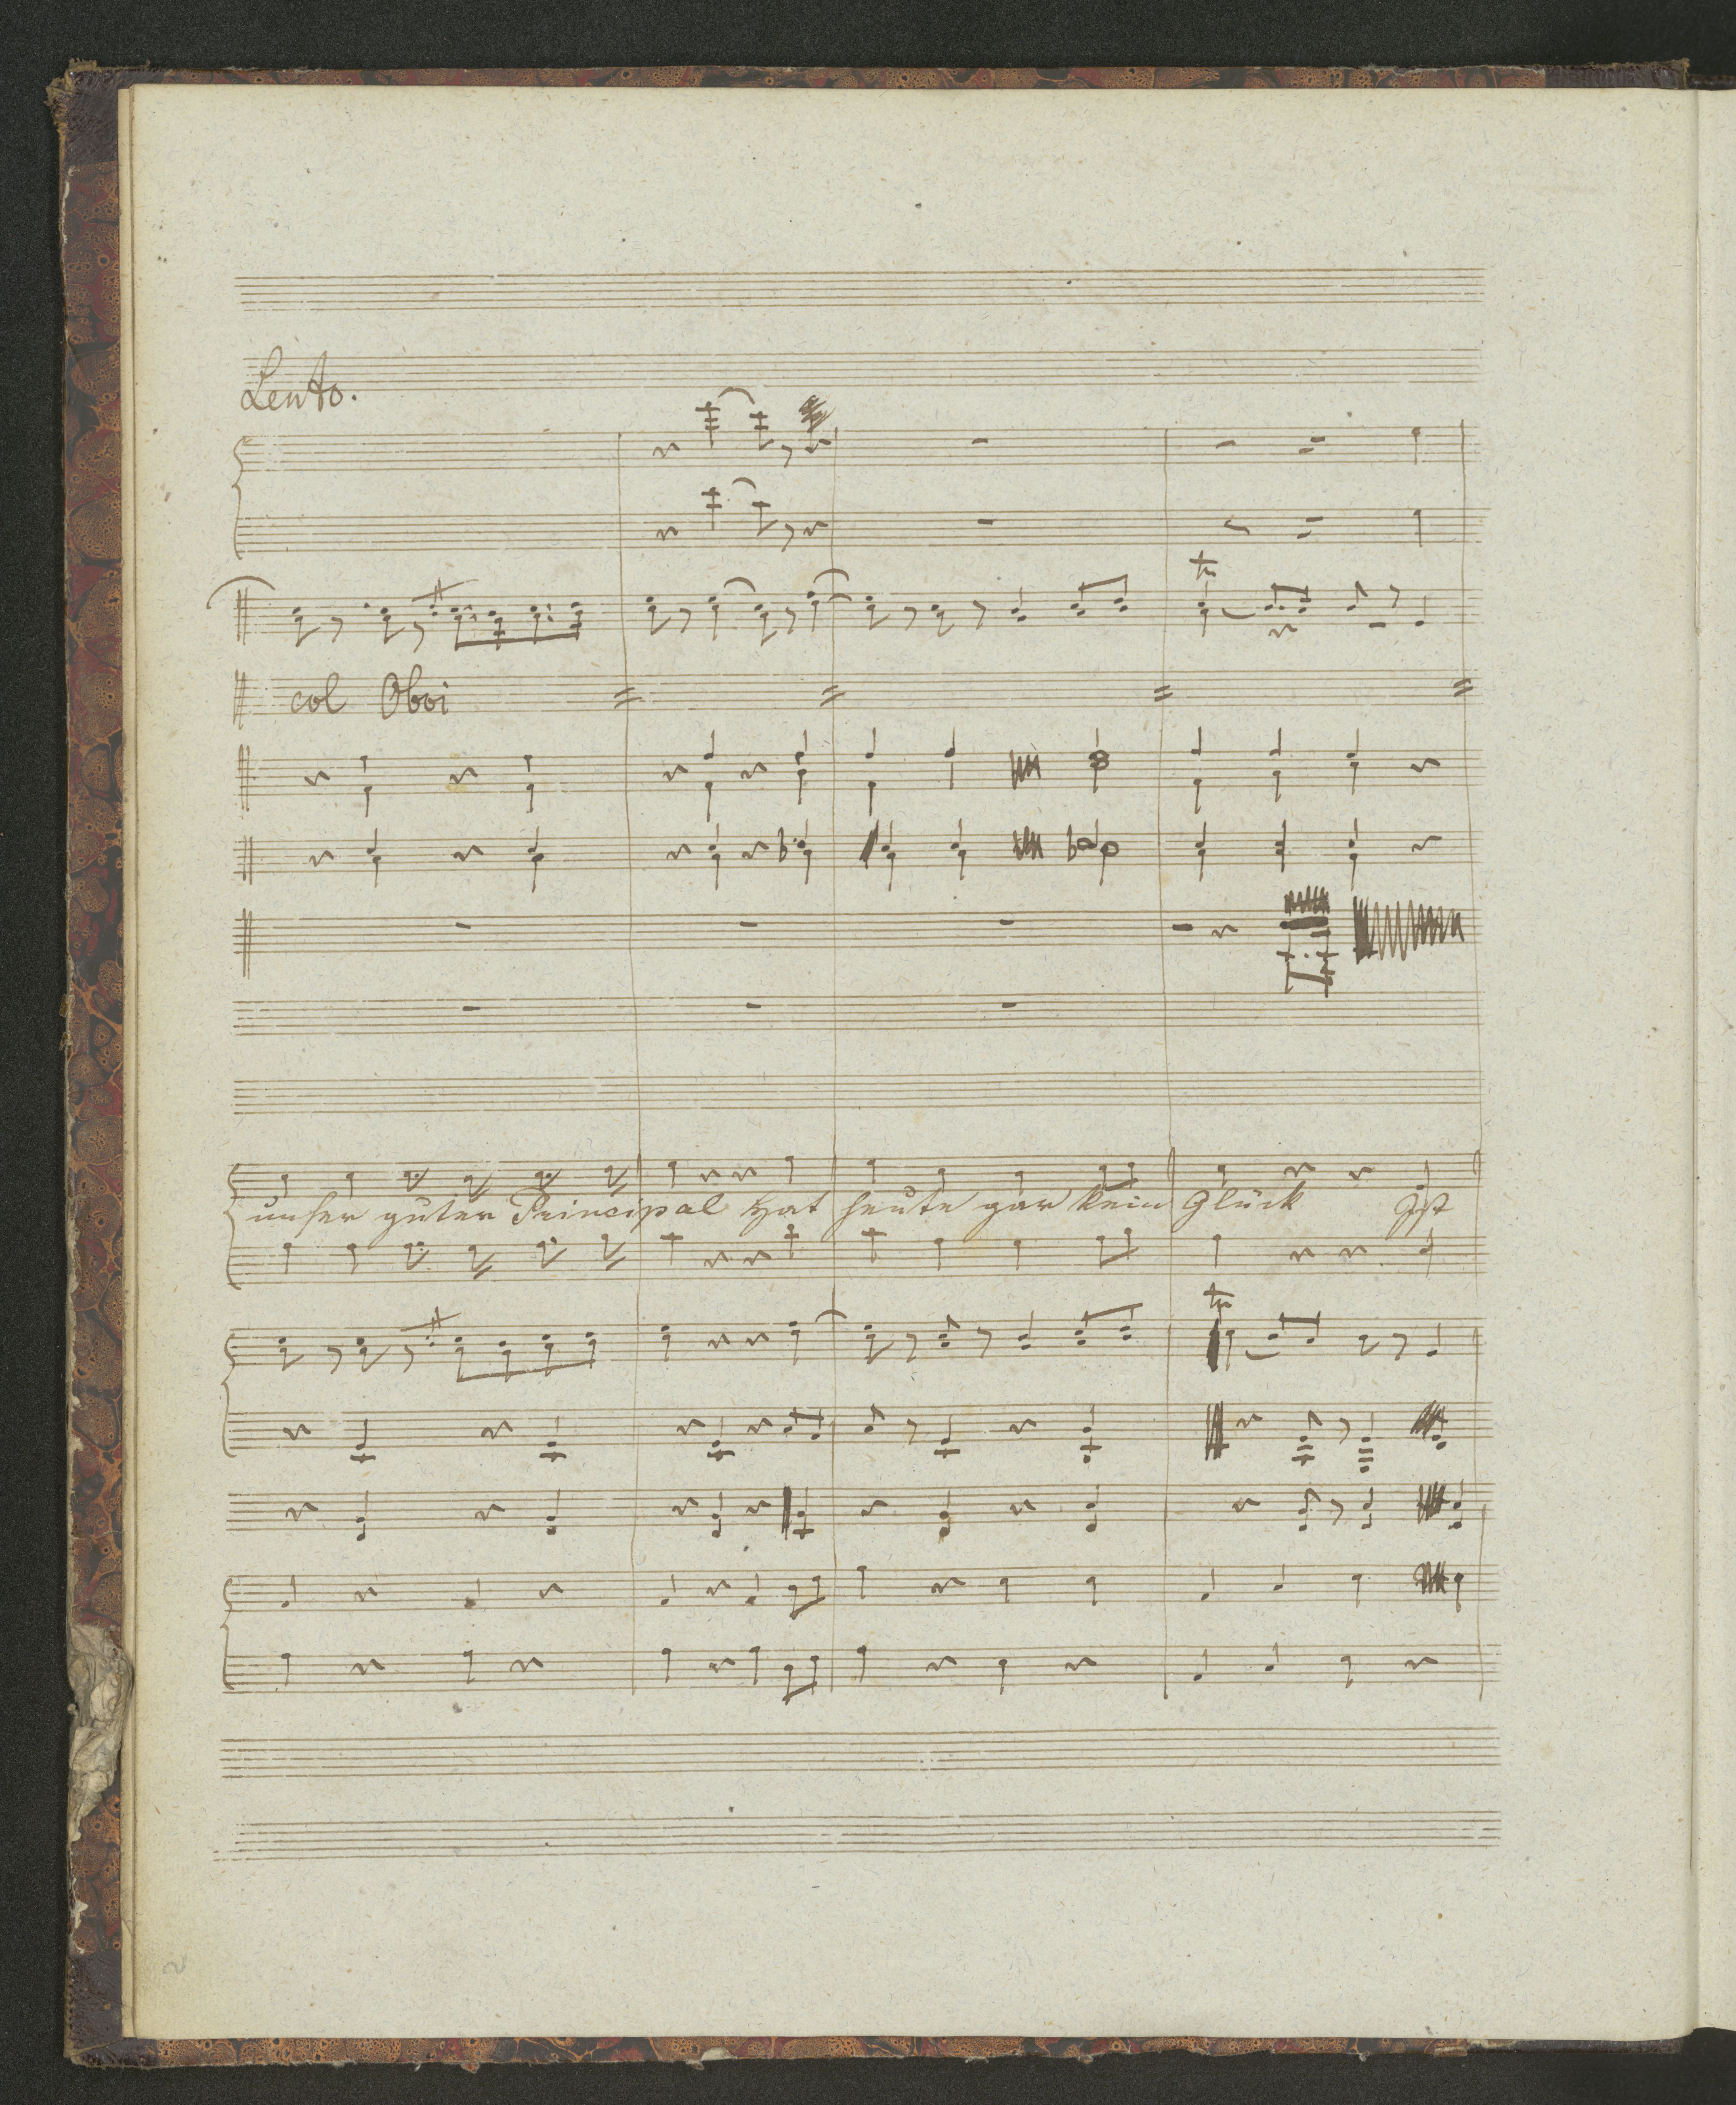 Lento.
tr
col Oboi
unser guter Principal hat heute gar kein Glück Ist
tr
2